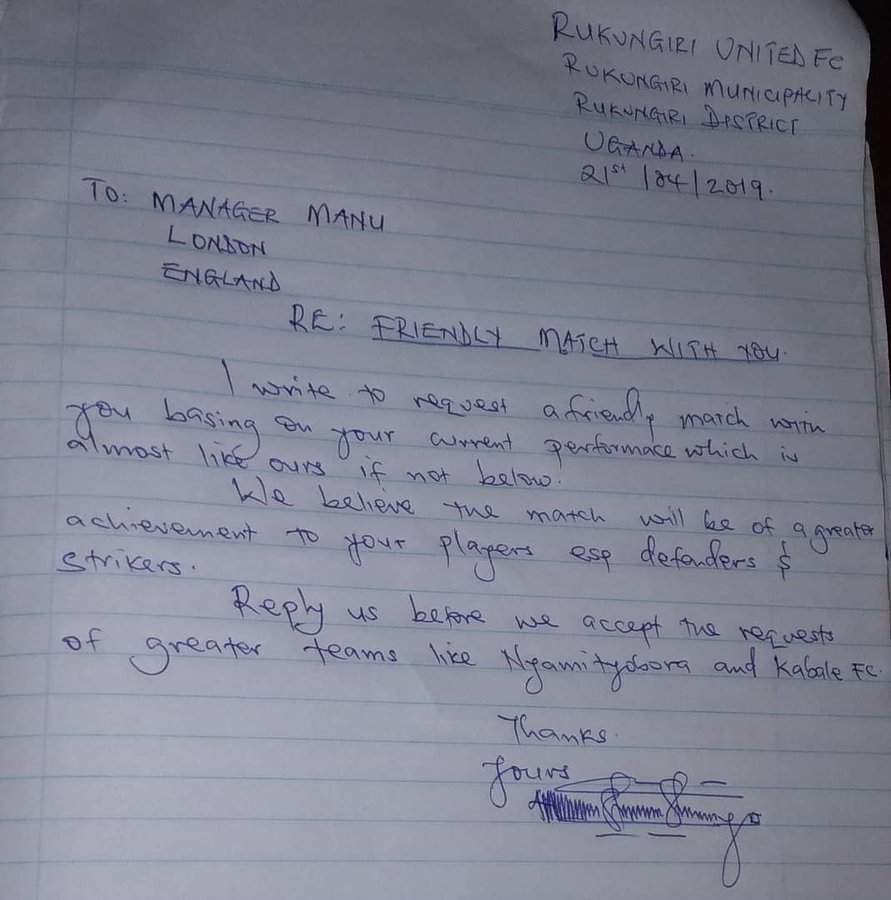 RUKUNGIRI UNITED FC
RUKUNGIRI MUNICIPALITY
RUKUNGIRI DISTRICT
UGANDA.
21st /04/2019.
TO: MANAGER MANU
LONDON
ENGLAND
RE: FRIENDLY MATCH WITH YOU.
I write to request a friendly match with
you basing on your current performace which is
almost like ours if not below.
We believe the match will be of a greater
achievement to your players esp defenders &
strikers.
Reply us before we accept the requests
of greater teams like Nyamityobora and Kabale FC.
Thanks.
Yours